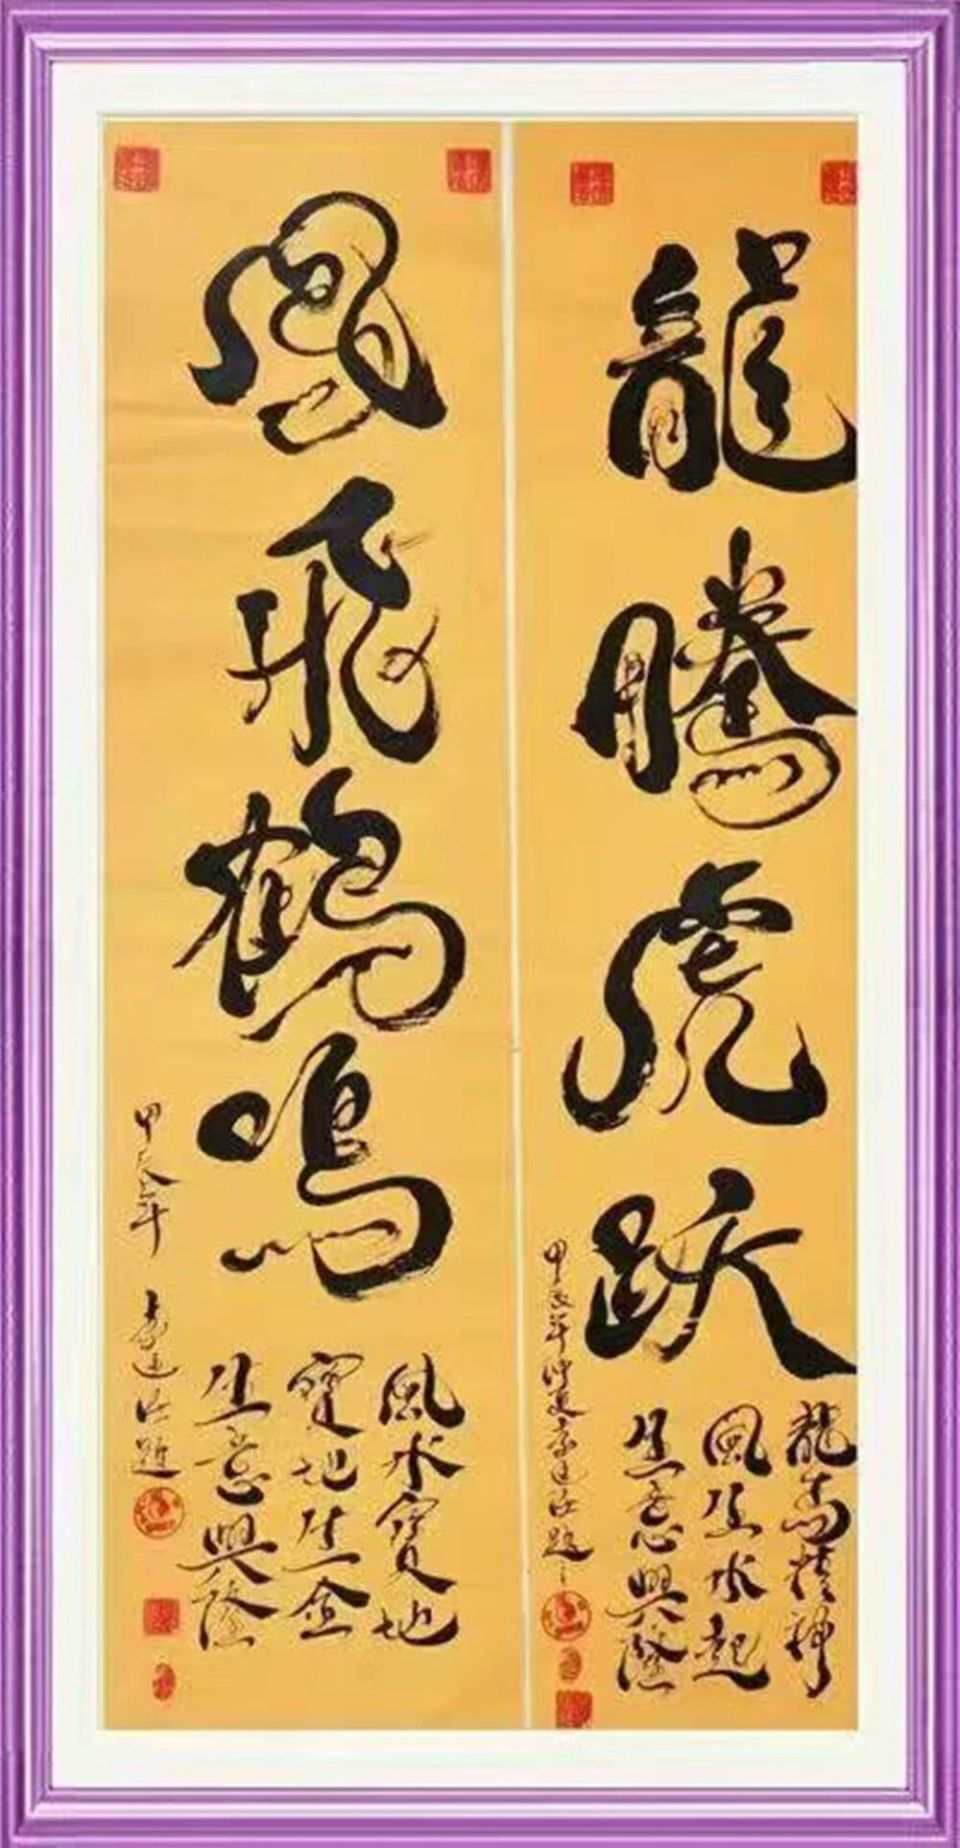 龍騰虎跃
龍馬精神
風生水起
生意興隆
甲辰年仲夏 題
鳳飛鶴鳴
風水寶地
寶地生金
生意興隆
甲辰年 題